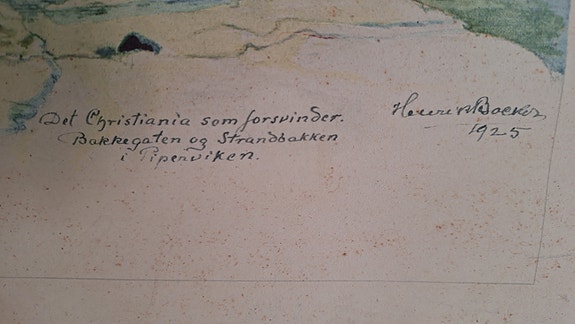 Det Christiania som forsvinder.
Bakkegaten og Strandbakken
i Piperviken.
Henrik Backer
1925